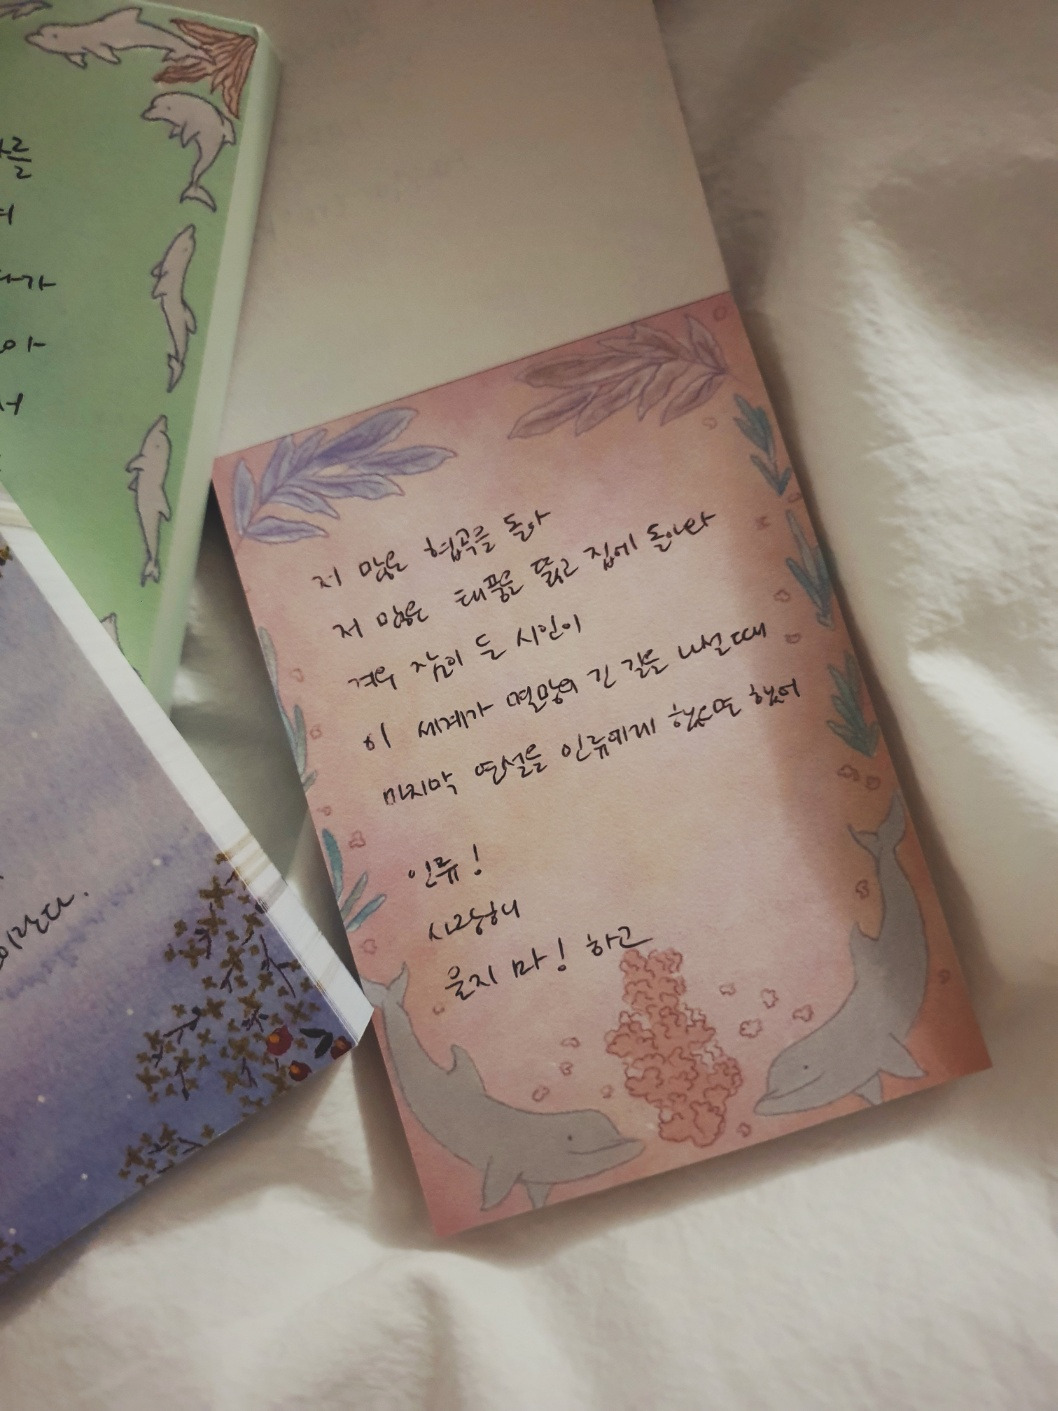 를
저 많은 협곡을 돌아
저 많은 태풍을 뚫고 집에 돌아와
겨우 잠이 든 시인이
이 세계가 멸망의 긴 길을 나설 때
마지막 연설을 인류에게 했으면 했어
인류!
사랑해
울지 마! 하고